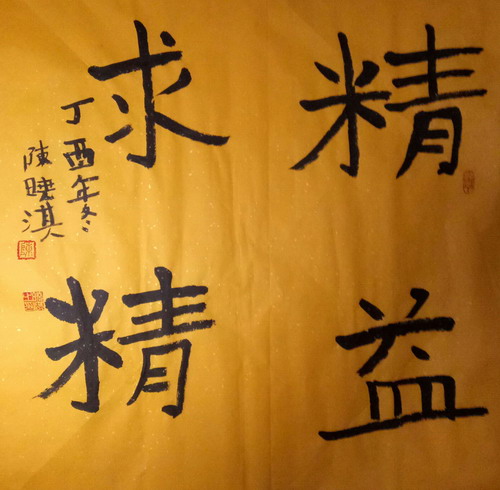 精益
求精
丁酉年冬
陳曉淇